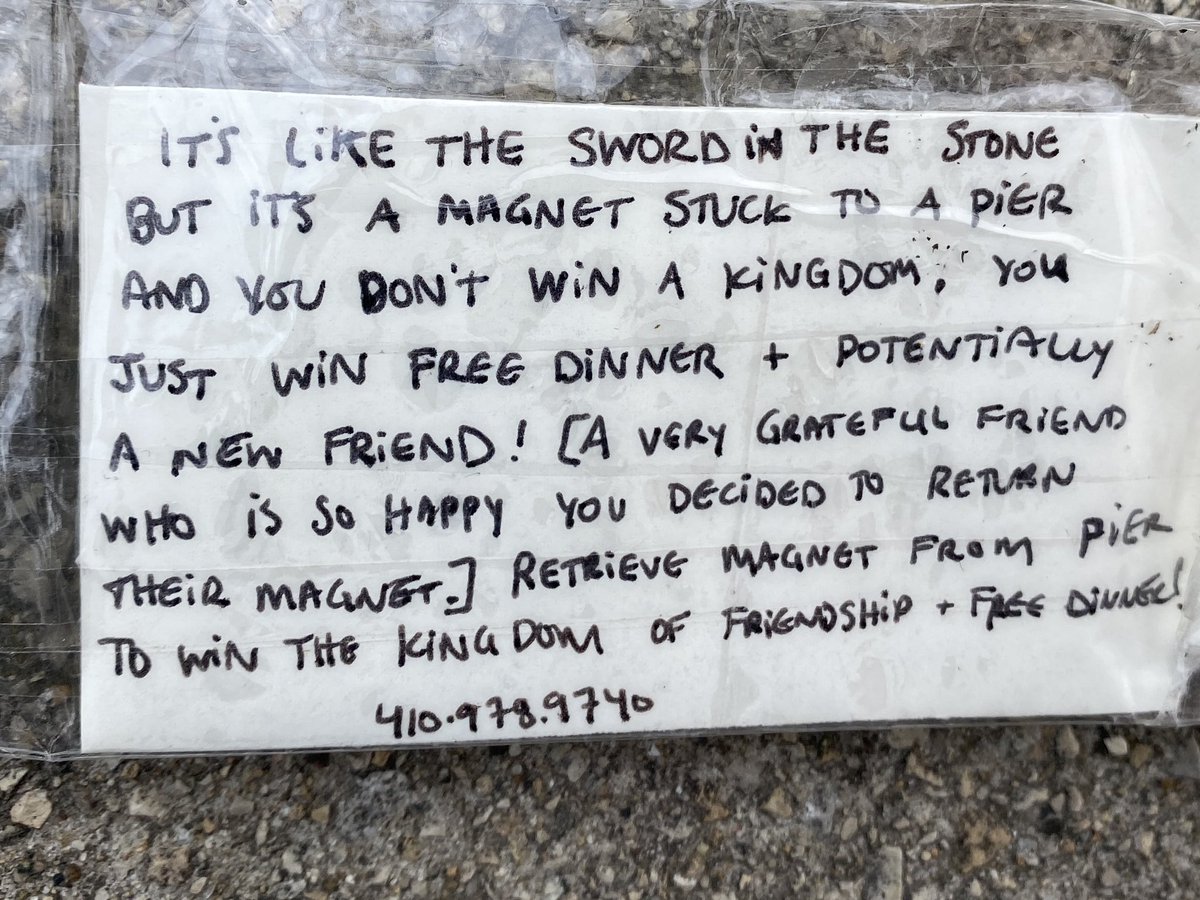 IT'S LIKE THE SWORD IN THE STONE
BUT IT'S A MAGNET STUCK TO A PIER
AND YOU DON'T WIN A KINGDOM, YOU
JUST WIN FREE DINNER + POTENTIALLY
A NEW FRIEND! [A VERY GRATEFUL FRIEND
WHO IS SO HAPPY YOU DECIDED TO RETURN
THEIR MAGNET.] RETRIEVE MAGNET FROM PIER
TO WIN THE KINGDOM OF FRIENDSHIP + FREE DINNER!
410.978.9740